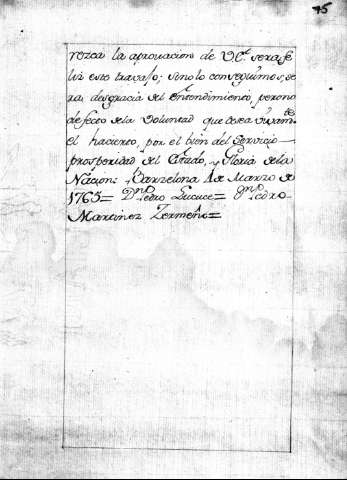 75
rezca la aprouacion de V.E. sera fe
liz este travajo; sino lo conseguimos, se
ra desgracia del entendimiento, pero no
defecto de la Voluntad que desea vivam.te
el hacierto, por el bien del Servicio
prosperidad del Estado, y Gloria de la
Nacion: Barzelona 1 de Marzo de
1765= D.n Pedro Lucuce= D.n Pedro
Martinez Zermeño=